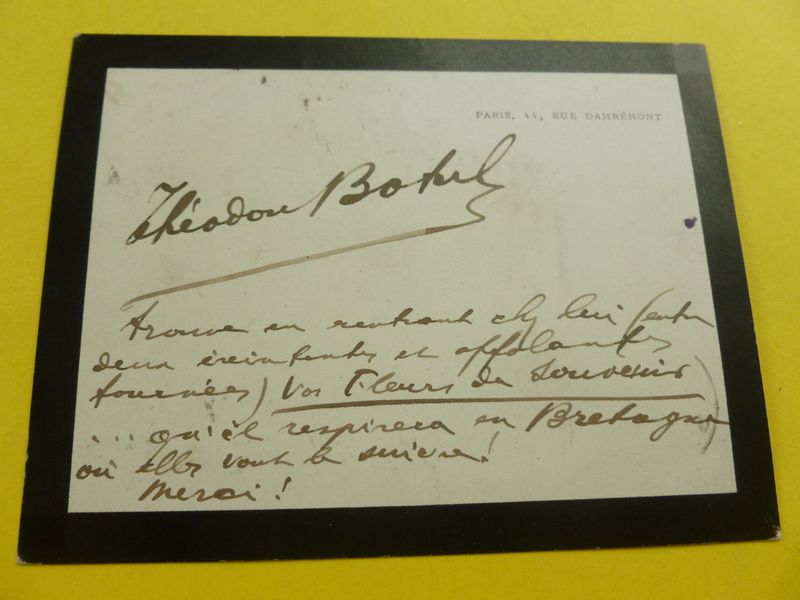 PARIS, 44, RUE DAMRÉMONT
Théodore Botrel
trouve en rentrant chez lui (entre
deux éreintantes et affolantes
tournées) vos Fleurs du Souvenir
... qu'il respirera en Bretagne
où elles vont le suivre!
Merci!